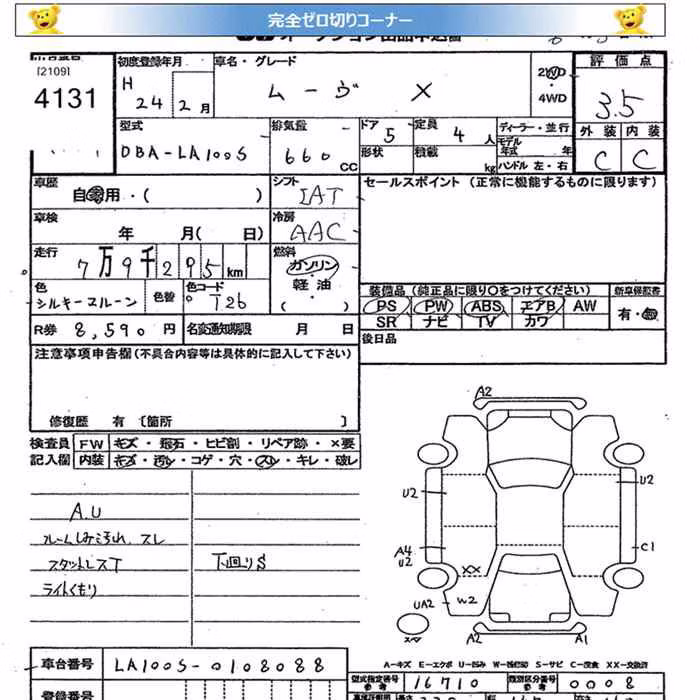 完全ゼロ切りコーナー
[2109]
4131
初度登録年月
H 24 2月
車名・グレード
ムーヴ X
2WD
4WD
評価点
3.5
外装 内装
C C
型式
DBA-LA100S
排気量
660 CC
ドア 5
形状
定員 4人
積載 kg
ディーラー・並行
モデル年式 年
ハンドル 左・右
車歴
自家用・( )
シフト
IAT
セールスポイント (正常に機能するものに限ります)
車検
年 月( 日)
冷房
AAC
走行
7万9千295km
燃料
ガソリン
軽油
( )
色
シルキーブルーン
色替
色コード
T26
装備品(純正品に限り○をつけてください)
PS PW ABS エアB AW
SR ナビ TV カワ
新車保証書
有・無
R券 8,590円
名変通知期限 月 日
後日品
注意事項申告欄(不具合内容等は具体的に記入して下さい)
修復歴 有 〔箇所 〕
検査員 FW キズ・飛石・ヒビ割・リペア跡・×要
記入欄 内装 キズ・汚レ・コゲ・穴・スレ・キレ・破レ
A.U
ルームしみ汚れ、スレ
スタットレスT
ライトくもり
下回りS
A2
U2
U2
A4
U2
C1
XX
UA2
W2
スペ
A2
A1
A-キズ E-エクボ U-凹み W-補修跡 S-サビ C-腐食 XX-交換済
車台番号 LA100S-0108088
型式指定番号 参考 16710
類別区分番号 参考 0008
登録番号